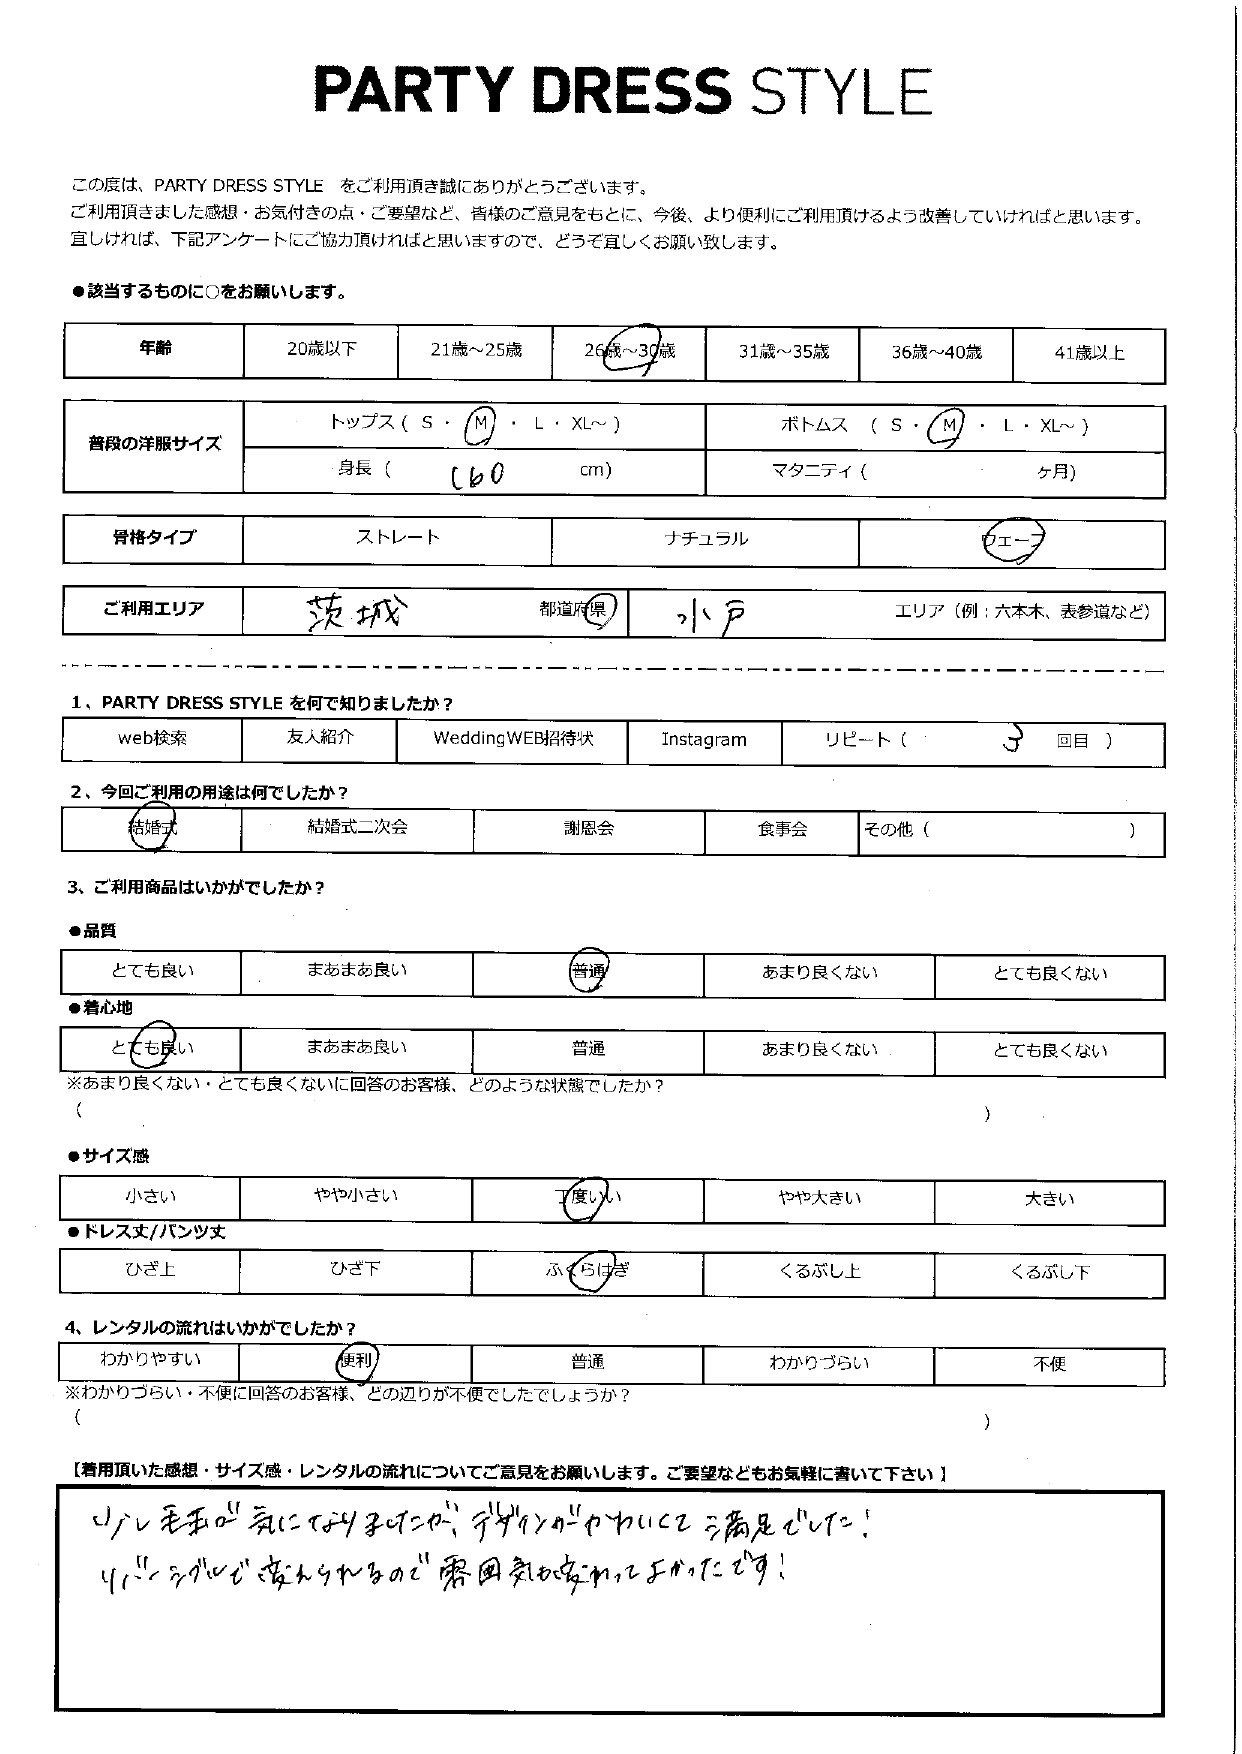 PARTY DRESS STYLE
この度は、PARTY DRESS STYLE をご利用頂き誠にありがとうございます。
ご利用頂きました感想・お気付きの点・ご要望など、皆様のご意見をもとに、今後、より便利にご利用頂けるよう改善していければと思います。
宜しければ、下記アンケートにご協力頂ければと思いますので、どうぞ宜しくお願い致します。
●該当するものに○をお願いします。
年齢 20歳以下 21歳～25歳 26歳～30歳 31歳～35歳 36歳～40歳 41歳以上
普段の洋服サイズ トップス ( S ・ M ・ L ・ XL～ ) ボトムス ( S ・ M ・ L ・ XL～ )
身長 ( 160 cm) マタニティ ( ヶ月)
骨格タイプ ストレート ナチュラル ウェーブ
ご利用エリア 茨城 都道府県 水戸 エリア (例：六本木、表参道など)
1、PARTY DRESS STYLE を何で知りましたか？
web検索 友人紹介 WeddingWEB招待状 Instagram リピート ( 3 回目 )
2、今回ご利用の用途は何でしたか？
結婚式 結婚式二次会 謝恩会 食事会 その他 ( )
3、ご利用商品はいかがでしたか？
●品質
とても良い まあまあ良い 普通 あまり良くない とても良くない
●着心地
とても良い まあまあ良い 普通 あまり良くない とても良くない
※あまり良くない・とても良くないに回答のお客様、どのような状態でしたか？
( )
●サイズ感
小さい やや小さい 丁度いい やや大きい 大きい
●ドレス丈/パンツ丈
ひざ上 ひざ下 ふくらはぎ くるぶし上 くるぶし下
4、レンタルの流れはいかがでしたか？
わかりやすい 便利 普通 わかりづらい 不便
※わかりづらい・不便に回答のお客様、どの辺りが不便でしたでしょうか？
( )
【着用頂いた感想・サイズ感・レンタルの流れについてご意見をお願いします。ご要望などもお気軽に書いて下さい 】
少し毛玉が気になりましたが、デザインがかわいくて満足でした！
リバーシブルで変えられるので雰囲気も変わってよかったです！